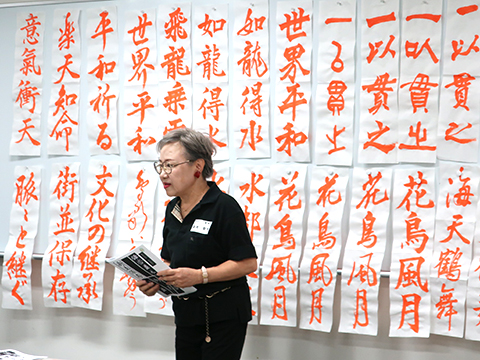 意氣衝天
楽天知命
平和祈る
世界平和
飛龍乗雲
如龍得水
如龍得水
世界平和
一以貫之
一以貫之
一以貫之
一以貫之
脈々と継ぐ
街並保存
文化の継承
花鳥風月
花鳥風月
花鳥風月
花鳥風月
海天鶴舞